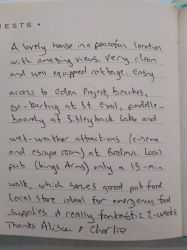 ESTS •
A lovely house in a peaceful location
with amazing views. Very clean
and well equipped cottage. Easy
access to Eden Project, beaches,
go-karting at St. Eval, paddle-
boarding at Sibleyback Lake and
wet-weather attractions (cinema
and escape room) at Bodmin. Local
pub (Kings Arms) only a 15-min
walk, which serves good pub food.
Local store ideal for emergency food
supplies. A really fantastic 2-weeks.
Thanks Alison & Charlie